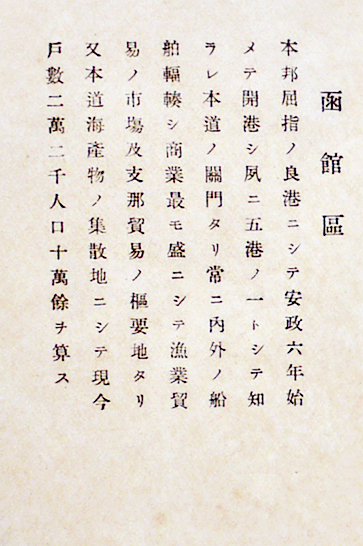 函館區
本邦屈指ノ良港ニシテ安政六年始
メテ開港シ夙ニ五港ノ一トシテ知
ラレ本道ノ關門タリ常ニ內外ノ船
舶輻輳シ商業最モ盛ニシテ漁業貿
易ノ市塲及支那貿易ノ樞要地タリ
又本道海產物ノ集散地ニシテ現今
戶數二萬二千人口十萬餘ヲ算ス